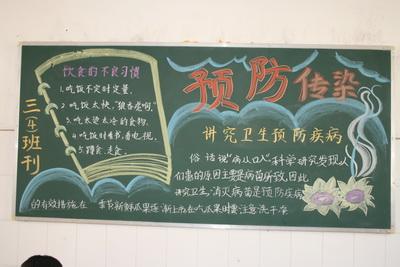 三(4)班刊
饮食的不良习惯
1.吃饭不定时定量.
2.吃饭太快,"狼吞虎咽"
3.吃太烫太冷的食物.
4.吃饭时看书,看电视.
5.蹲食、走食.
预防传染
讲究卫生预防疾病
俗话说"病从口入"科学研究发现人
们患的原因主要是病菌所致,因此
讲究卫生,消灭病菌是预防疾病
的有效措施在 季节新鲜瓜果逐渐上市在吃瓜果时要注意洗干净